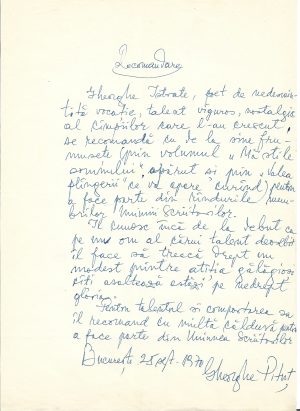 Recomandare
Gheorghe Istrate, poet de nedezmin-
țită vocație, talent viguros, nostalgic
al cîmpiilor care l-au crescut,
se recomandă cu de la sine fru-
musețe (prin volumul "Măștile
somnului", apărut și prin "Valea
plîngerii" ce va apare curînd) pentru
a face parte din rîndurile mem-
brilor Uniunii Scriitorilor.
Îl cunosc încă de la debut ca
pe un om al cărui talent deosebit
îl face să treacă drept un
modest printre atîția gălăgioși
cîți asaltează astăzi pe nedrept
gloria.
Pentru talentul și comportarea sa
îl recomand cu multă căldură pentru
a face parte din Uniunea Scriitorilor
București 25 sept. 1970
Gheorghe Pituț